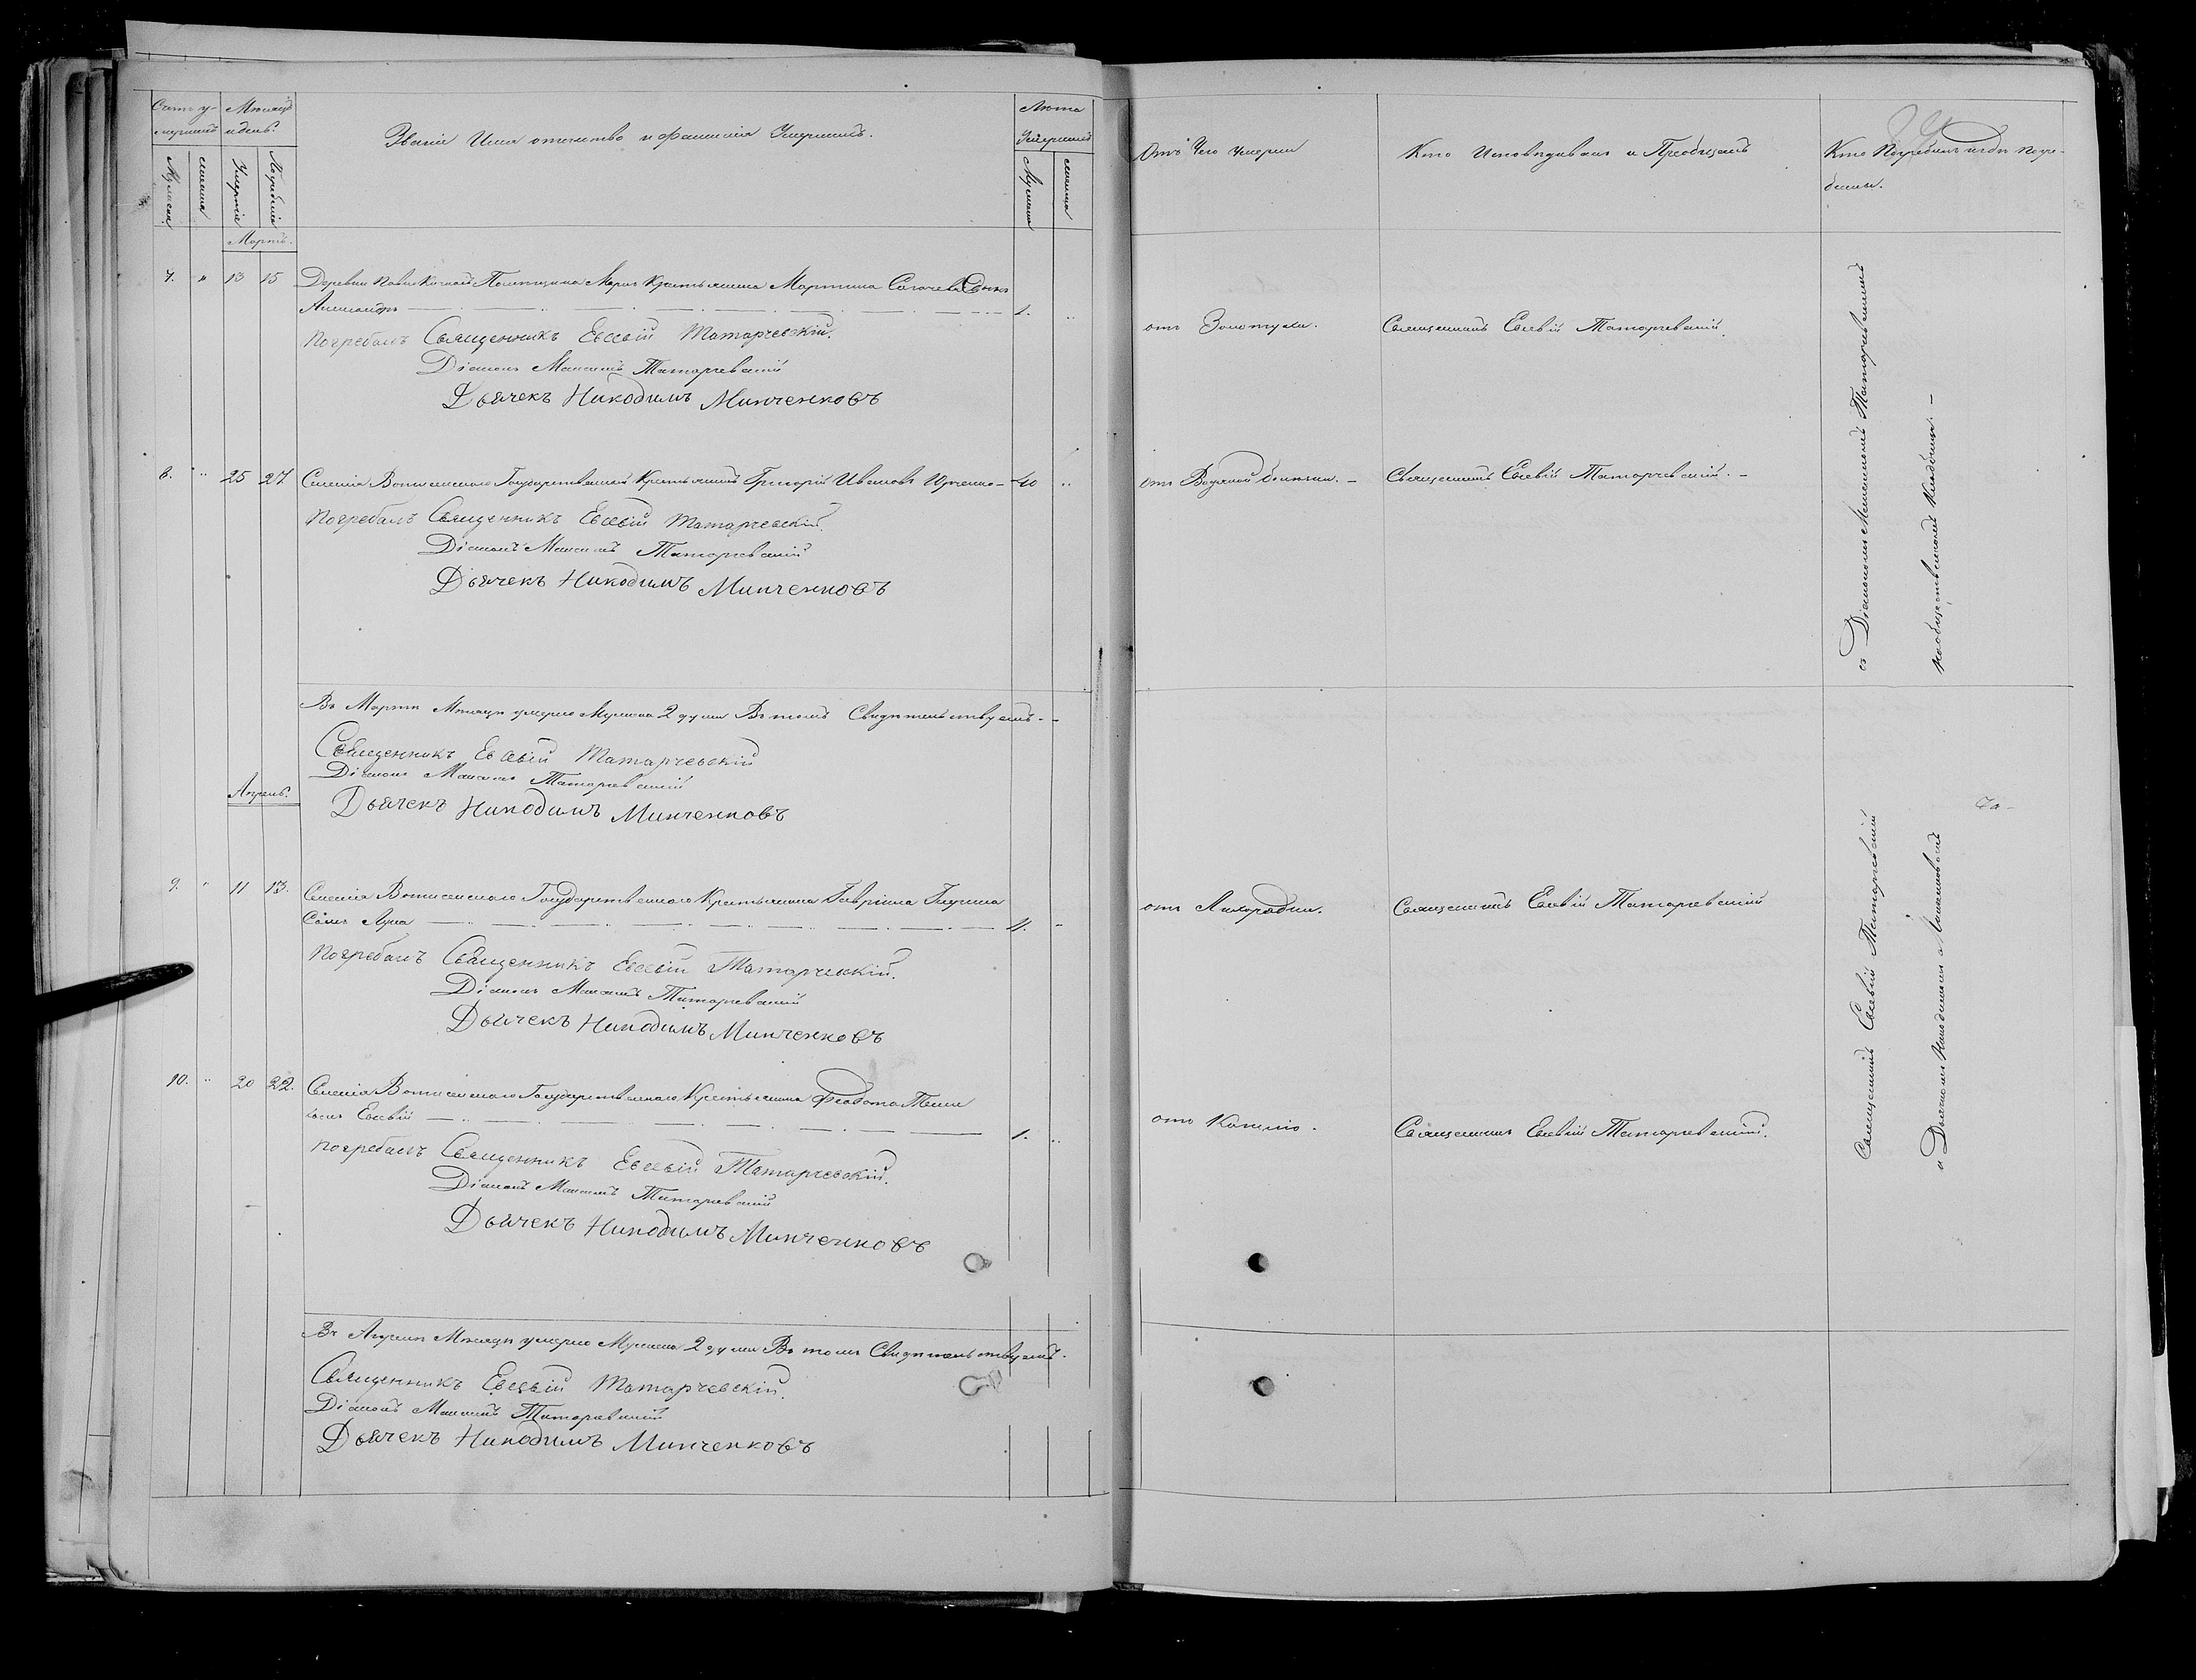 Счетъ у-
мершихъ
Мѣсяцъ
и день.
Званіе Имя отечество и фамилія Умершихъ.
Лета
Умершихъ
Мужеска
женска
Умертія
Погребенія
Мужеска
женска
Отъ Чего умерли
Кто Исповѣдывалъ и Пріобщалъ
Кто Погребалъ и гдѣ Погре-
бены.
Мартъ.
7. " 13 15 Деревни Помѣщика Крестьянина Мартина Сынъ
Александръ 1. "
отъ Золотухи.
Священникъ Евсевій Татарчевскій.
Погребалъ Священникъ Евсевій Татарчевскій.
Діаконъ Татарчевскій
Дьячекъ Никодимъ Минченковъ
8. " 25 27 Селенія Государственный Крестьянинъ Григорій Ивановъ 40 "
отъ Водяной болезни. -
Священникъ Евсевій Татарчевскій. -
Погребалъ Священникъ Евсевій Татарчевскій.
Діаконъ Татарчевскій
Дьячекъ Никодимъ Минченковъ
съ Діакономъ Татарчевскимъ
на общественномъ Кладбищѣ. -
Въ Мартѣ Мѣсяцѣ умерло Мужеска 2 души Въ томъ Свидѣтельствуемъ. -
Священникъ Евсевій Татарчевскій
Діаконъ Татарчевскій
Дьячекъ Никодимъ Минченковъ
Апрель.
9. " 11 13. Селенія Государственнаго Крестьянина Гавріила
Сынъ 11. -
отъ Лихорадки.
Священникъ Евсевій Татарчевскій
Погребалъ Священникъ Евсевій Татарчевскій.
Діаконъ Татарчевскій
Дьячекъ Никодимъ Минченковъ
10. " 20 22. Селенія Государственнаго Крестьянина Феодота
сынъ Евсевій 1. "
отъ Кашлю.
Священникъ Евсевій Татарчевскій.
Погребалъ Священникъ Евсевій Татарчевскій.
Діаконъ Татарчевскій
Дьячекъ Никодимъ Минченковъ
Священникъ Евсевій Татарчевскій
и Дьячкомъ Никодимомъ Минченковымъ
Въ Апрелѣ Мѣсяцѣ умерло Мужеска 2 души Въ томъ Свидѣтельствуемъ.
Священникъ Евсевій Татарчевскій.
Діаконъ Татарчевскій
Дьячекъ Никодимъ Минченковъ